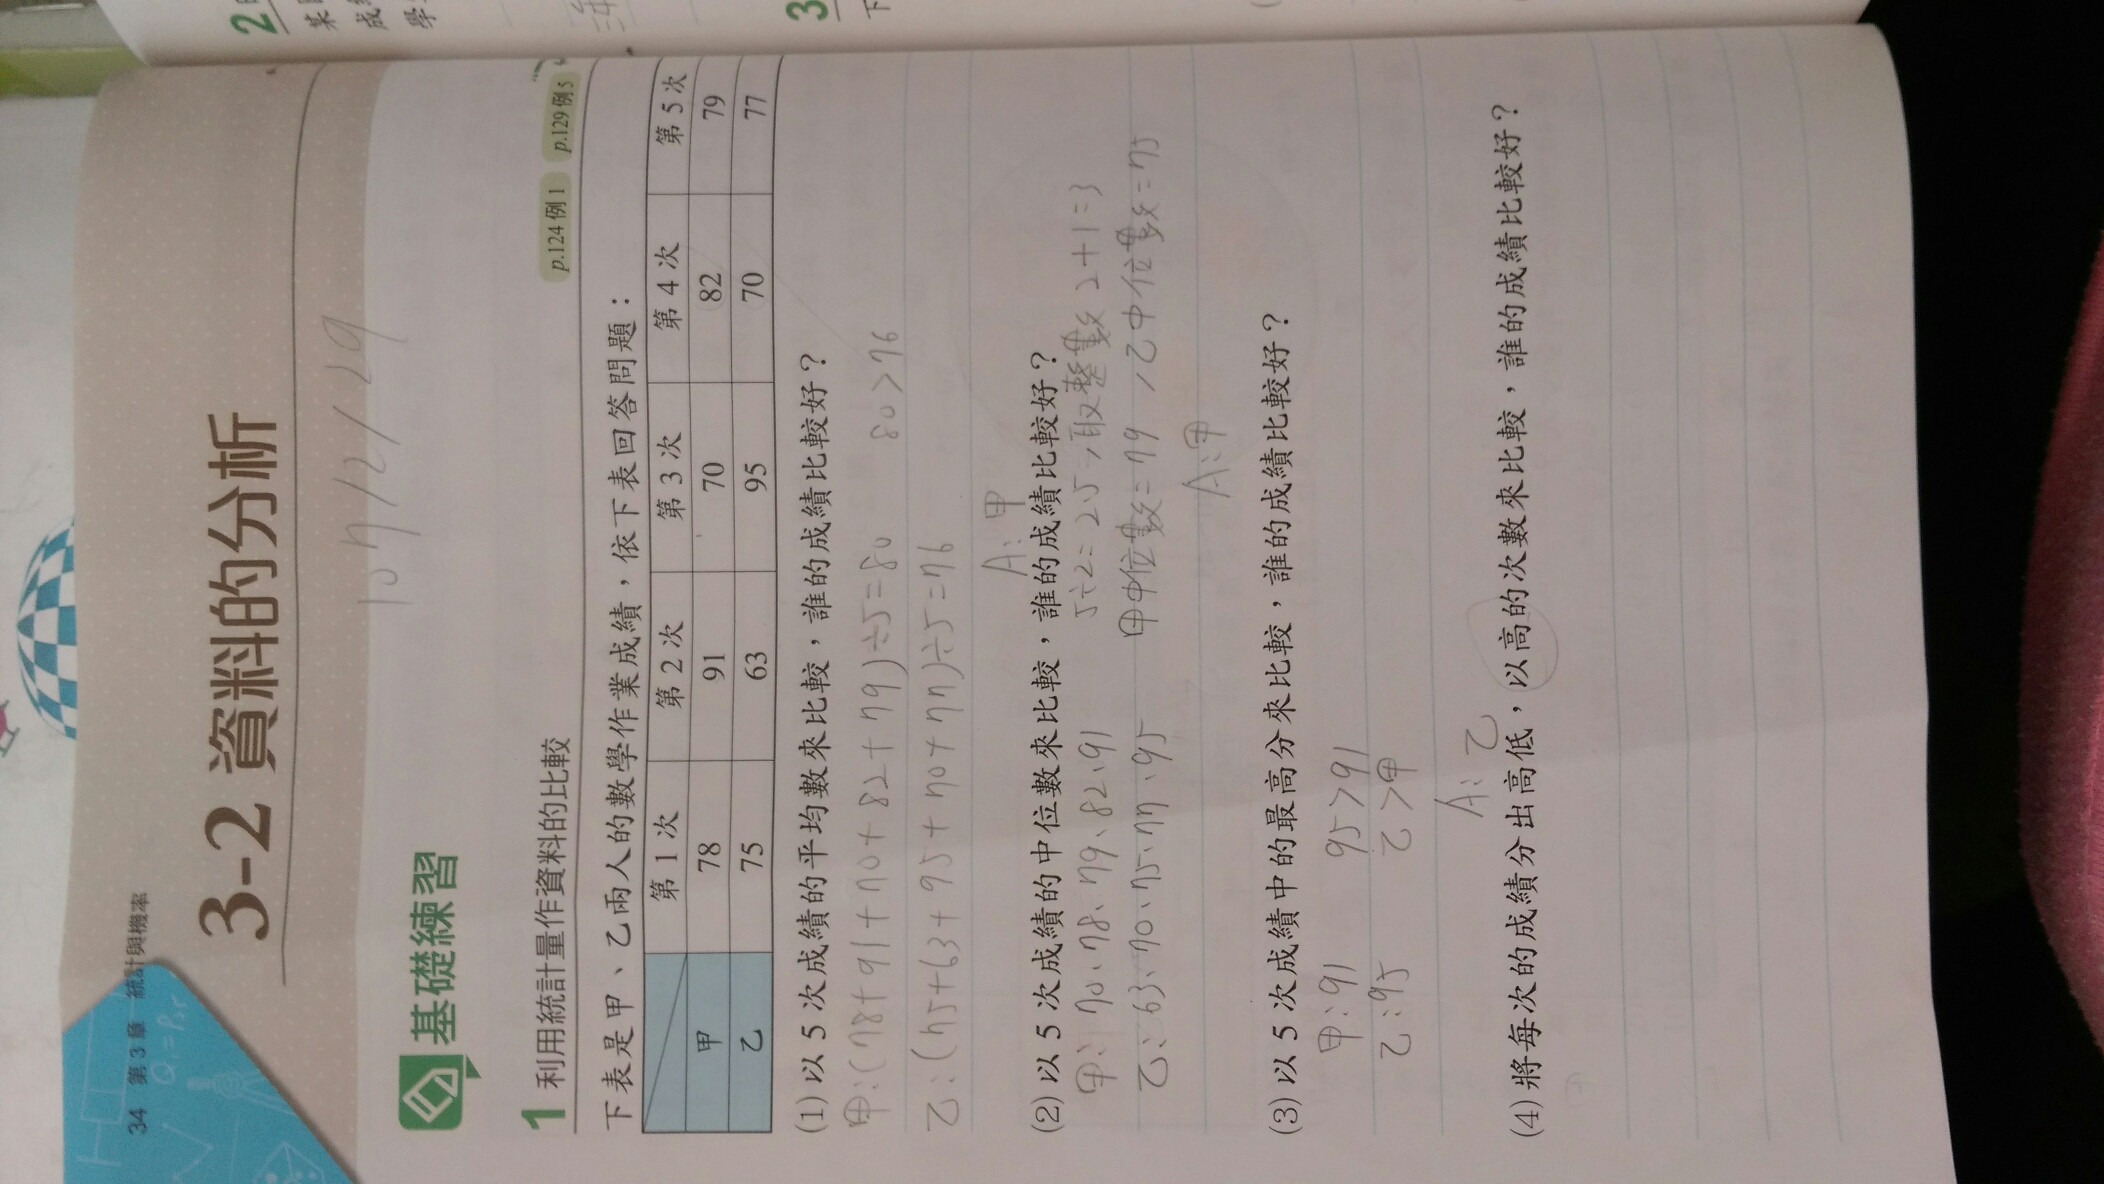 34 第3章 統計與機率
3-2 資料的分析
107/12/29
基礎練習
1 利用統計量作資料的比較 p.124例1 p.129例5
下表是甲、乙兩人的數學作業成績,依下表回答問題:
第1次 第2次 第3次 第4次 第5次
甲 78 91 70 82 79
乙 75 63 95 70 77
(1)以5次成績的平均數來比較,誰的成績比較好?
甲:(78+91+70+82+79)÷5=80 80>76
乙:(75+63+95+70+77)÷5=76
A:甲
(2)以5次成績的中位數來比較,誰的成績比較好?
甲:70、78、79、82、91 5÷2=2.5,取整數2+1=3
乙:63、70、75、77、95 甲中位數=79,乙中位數=75
A:甲
(3)以5次成績中的最高分來比較,誰的成績比較好?
甲:91 95>91
乙:95 乙>甲
A:乙
(4)將每次的成績分出高低,以高的次數來比較,誰的成績比較好?